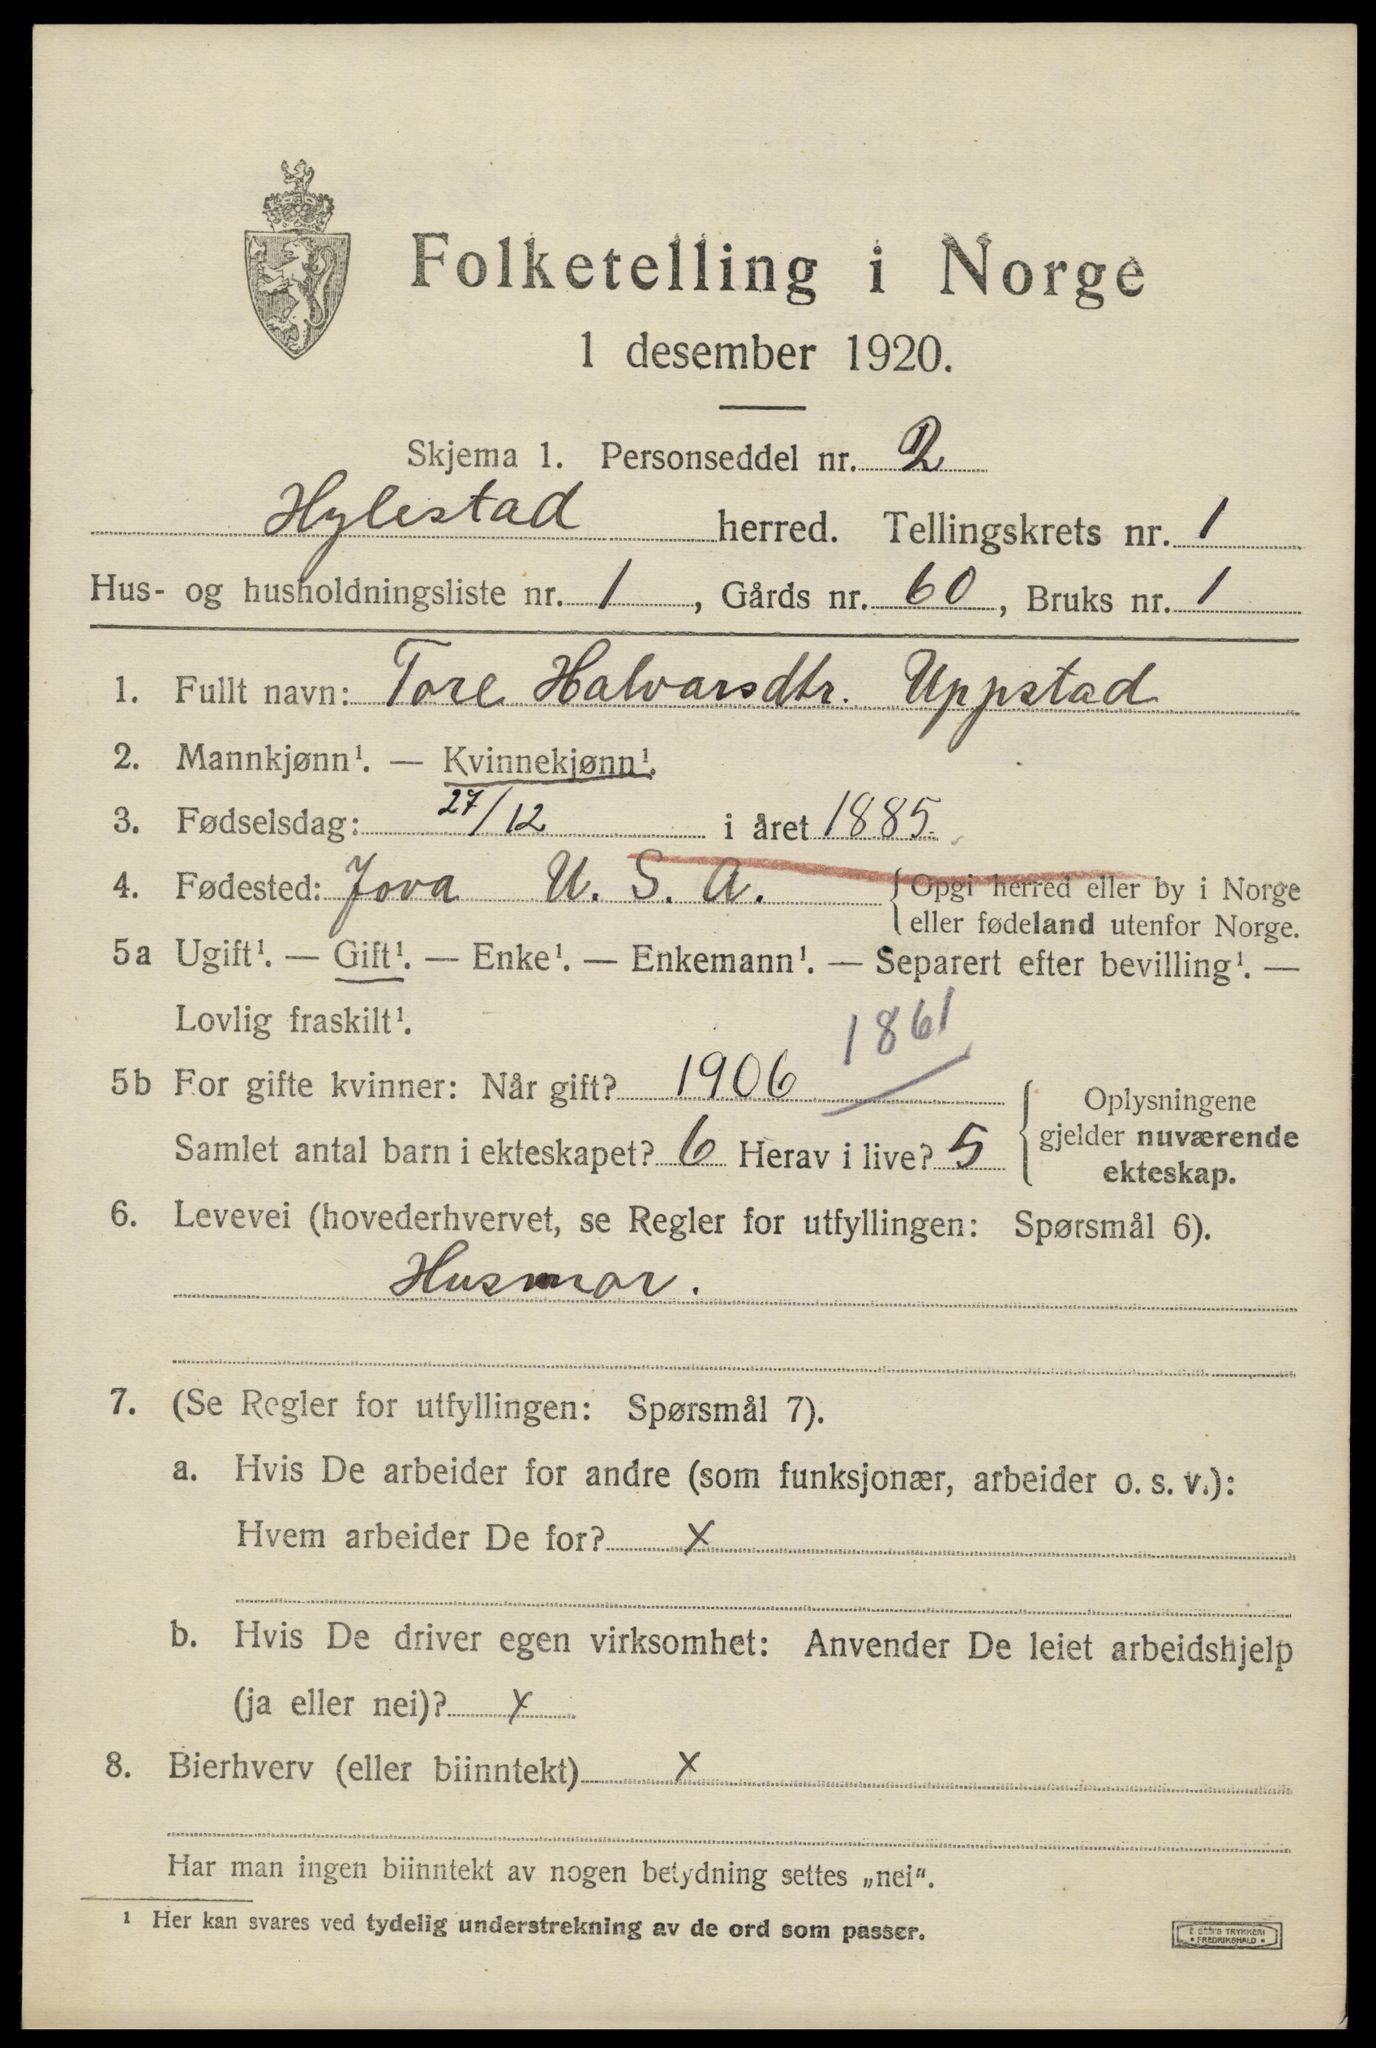 Folketelling i Norge
1 desember 1920.
Skjema 1. Personseddel nr. 2
Hylestad herred. Tellingskrets nr. 1
Hus- og husholdningsliste nr. 1, Gårds nr. 60, Bruks nr. 1
1. Fullt navn: Tore Halvarsdtr. Uppstad
2. Mannkjønn¹. — Kvinnekjønn¹.
3. Fødselsdag: 27/12 i året 1885.
4. Fødested: Jova U. S. A. { Opgi herred eller by i Norge
eller fødeland utenfor Norge.
5a Ugift¹. — Gift¹. — Enke¹. — Enkemann¹. — Separert efter bevilling¹. —
Lovlig fraskilt¹.
1861
5b For gifte kvinner: Når gift? 1906
Samlet antal barn i ekteskapet? 6 Herav i live? 5
Oplysningene
gjelder nuværende
ekteskap.
6. Levevei (hovederhvervet, se Regler for utfyllingen: Spørsmål 6).
Husmor.
7. (Se Regler for utfyllingen: Spørsmål 7).
a. Hvis De arbeider for andre (som funksjonær, arbeider o. s. v.):
Hvem arbeider De for? x
b. Hvis De driver egen virksomhet: Anvender De leiet arbeidshjelp
(ja eller nei)? x
8. Bierhverv (eller biinntekt) x
Har man ingen biinntekt av nogen betydning settes „nei".
¹ Her kan svares ved tydelig understrekning av de ord som passer.
TRYKKERI
FREDRIKSHALD